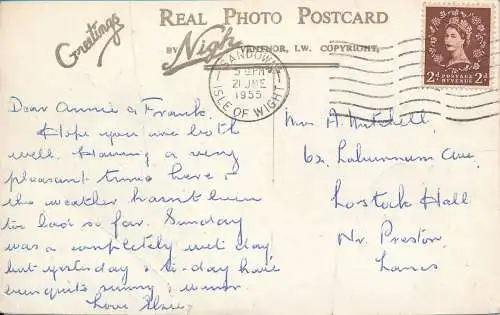 Greetings
REAL PHOTO POSTCARD
BY Nigh VENTNOR, I.W. COPYRIGHT.
SANDOWN
5 PM
21 JNE
1955
ISLE OF WIGHT
2d POSTAGE REVENUE 2d
Dear Annie & Frank.
Hope you are both
well. Having a very
pleasant time here &
the weather hasn't been
too bad so far. Sunday
was a completely wet day,
but yesterday & to-day have
been quite sunny & warm.
Love Elsie,
Mrs A. Mitchell,
62, Laburnum Ave,
Lostock Hall
Nr. Preston,
Lancs